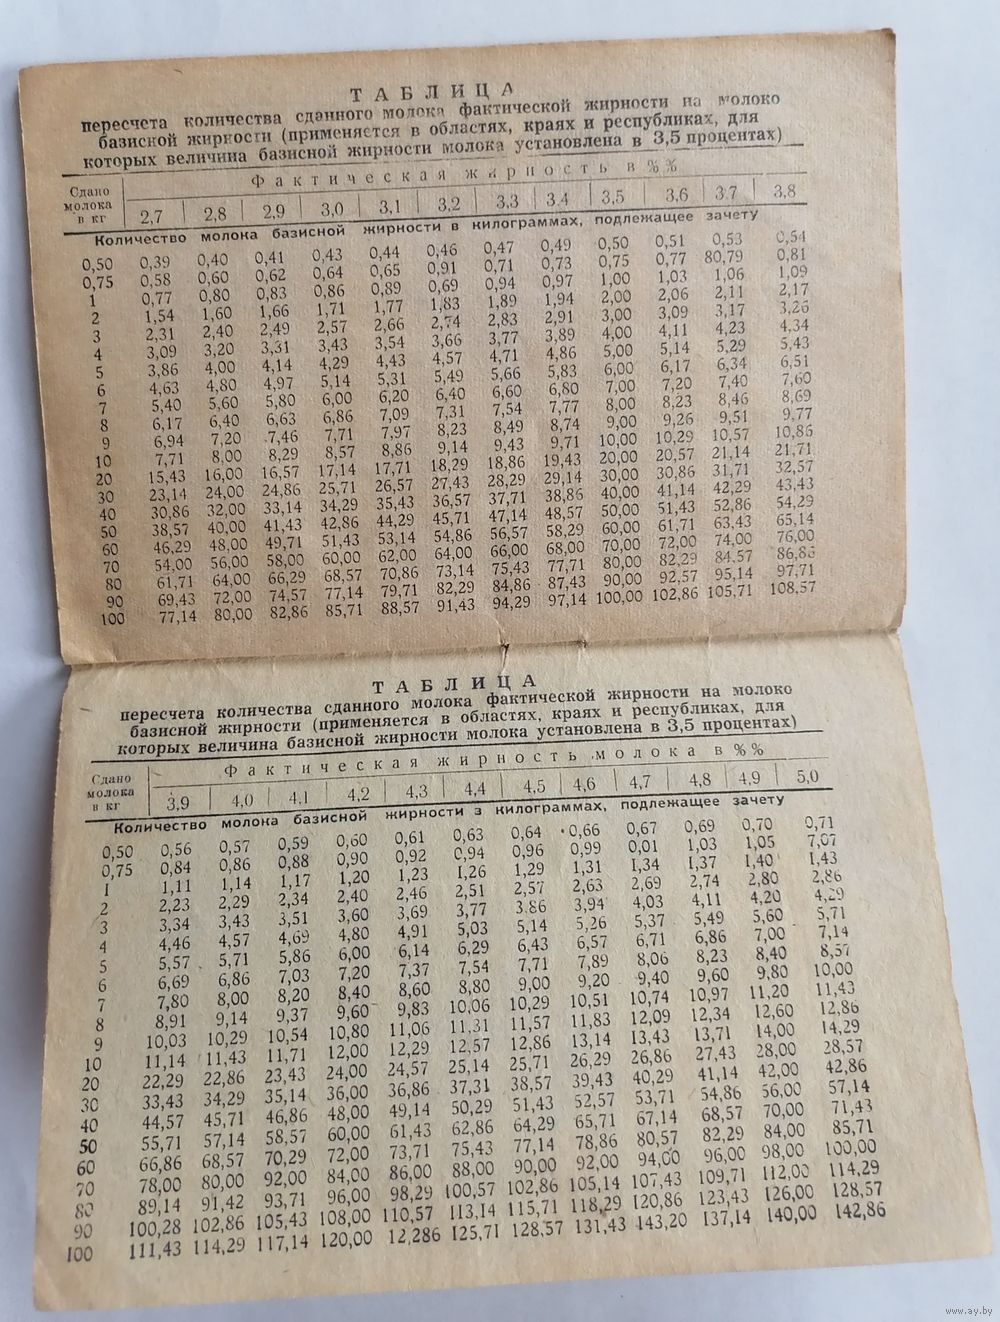 ТАБЛИЦА
пересчета количества сданного молока фактической жирности на молоко
базисной жирности (применяется в областях, краях и республиках, для
которых величина базисной жирности молока установлена в 3,5 процентах)
Сдано молока в кг
Фактическая жирность в %%
2,7 2,8 2,9 3,0 3,1 3,2 3,3 3,4 3,5 3,6 3,7 3,8
Количество молока базисной жирности в килограммах, подлежащее зачету
0,50 0,39 0,40 0,41 0,43 0,44 0,46 0,47 0,49 0,50 0,51 0,53 0,54
0,75 0,58 0,60 0,62 0,64 0,65 0,91 0,71 0,73 0,75 0,77 80,79 0,81
1 0,77 0,80 0,83 0,86 0,89 0,69 0,94 0,97 1,00 1,03 1,06 1,09
2 1,54 1,60 1,66 1,71 1,77 1,83 1,89 1,94 2,00 2,06 2,11 2,17
3 2,31 2,40 2,49 2,57 2,66 2,74 2,83 2,91 3,00 3,09 3,17 3,26
4 3,09 3,20 3,31 3,43 3,54 3,66 3,77 3,89 4,00 4,11 4,23 4,34
5 3,86 4,00 4,14 4,29 4,43 4,57 4,71 4,86 5,00 5,14 5,29 5,43
6 4,63 4,80 4,97 5,14 5,31 5,49 5,66 5,83 6,00 6,17 6,34 6,51
7 5,40 5,60 5,80 6,00 6,20 6,40 6,60 6,80 7,00 7,20 7,40 7,60
8 6,17 6,40 6,63 6,86 7,09 7,31 7,54 7,77 8,00 8,23 8,46 8,69
9 6,94 7,20 7,46 7,71 7,97 8,23 8,49 8,74 9,00 9,26 9,51 9,77
10 7,71 8,00 8,29 8,57 8,86 9,14 9,43 9,71 10,00 10,29 10,57 10,86
20 15,43 16,00 16,57 17,14 17,71 18,29 18,86 19,43 20,00 20,57 21,14 21,71
30 23,14 24,00 24,86 25,71 26,57 27,43 28,29 29,14 30,00 30,86 31,71 32,57
40 30,86 32,00 33,14 34,29 35,43 36,57 37,71 38,86 40,00 41,14 42,29 43,43
50 38,57 40,00 41,43 42,86 44,29 45,71 47,14 48,57 50,00 51,43 52,86 54,29
60 46,29 48,00 49,71 51,43 53,14 54,86 56,57 58,29 60,00 61,71 63,43 65,14
70 54,00 56,00 58,00 60,00 62,00 64,00 66,00 68,00 70,00 72,00 74,00 76,00
80 61,71 64,00 66,29 68,57 70,86 73,14 75,43 77,71 80,00 82,29 84,57 86,86
90 69,43 72,00 74,57 77,14 79,71 82,29 84,86 87,43 90,00 92,57 95,14 97,71
100 77,14 80,00 82,86 85,71 88,57 91,43 94,29 97,14 100,00 102,86 105,71 108,57
ТАБЛИЦА
пересчета количества сданного молока фактической жирности на молоко
базисной жирности (применяется в областях, краях и республиках, для
которых величина базисной жирности молока установлена в 3,5 процентах)
Сдано молока в кг
Фактическая жирность молока в %%
3,9 4,0 4,1 4,2 4,3 4,4 4,5 4,6 4,7 4,8 4,9 5,0
Количество молока базисной жирности з килограммах, подлежащее зачету
0,50 0,56 0,57 0,59 0,60 0,61 0,63 0,64 0,66 0,67 0,69 0,70 0,71
0,75 0,84 0,86 0,88 0,90 0,92 0,94 0,96 0,99 0,01 1,03 1,05 7,07
1 1,11 1,14 1,17 1,20 1,23 1,26 1,29 1,31 1,34 1,37 1,40 1,43
2 2,23 2,29 2,34 2,40 2,46 2,51 2,57 2,63 2,69 2,74 2,80 2,86
3 3,34 3,43 3,51 3,60 3,69 3,77 3,86 3,94 4,03 4,11 4,20 4,29
4 4,46 4,57 4,69 4,80 4,91 5,03 5,14 5,26 5,37 5,49 5,60 5,71
5 5,57 5,71 5,86 6,00 6,14 6,29 6,43 6,57 6,71 6,86 7,00 7,14
6 6,69 6,86 7,03 7,20 7,37 7,54 7,71 7,89 8,06 8,23 8,40 8,57
7 7,80 8,00 8,20 8,40 8,60 8,80 9,00 9,20 9,40 9,60 9,80 10,00
8 8,91 9,14 9,37 9,60 9,83 10,06 10,29 10,51 10,74 10,97 11,20 11,43
9 10,03 10,29 10,54 10,80 11,06 11,31 11,57 11,83 12,09 12,34 12,60 12,86
10 11,14 11,43 11,71 12,00 12,29 12,57 12,86 13,14 13,43 13,71 14,00 14,29
20 22,29 22,86 23,43 24,00 24,57 25,14 25,71 26,29 26,86 27,43 28,00 28,57
30 33,43 34,29 35,14 36,00 36,86 37,31 38,57 39,43 40,29 41,14 42,00 42,86
40 44,57 45,71 46,86 48,00 49,14 50,29 51,43 52,57 53,71 54,86 56,00 57,14
50 55,71 57,14 58,57 60,00 61,43 62,86 64,29 65,71 67,14 68,57 70,00 71,43
60 66,86 68,57 70,29 72,00 73,71 75,43 77,14 78,86 80,57 82,29 84,00 85,71
70 78,00 80,00 92,00 84,00 86,00 88,00 90,00 92,00 94,00 96,00 98,00 100,00
80 89,14 91,42 93,71 96,00 98,29 100,57 102,86 105,14 107,43 109,71 112,00 114,29
90 100,28 102,86 105,43 108,00 110,57 113,14 115,71 118,29 120,86 123,43 126,00 128,57
100 111,43 114,29 117,14 120,00 12,286 125,71 128,57 131,43 143,20 137,14 140,00 142,86
www.ay.by